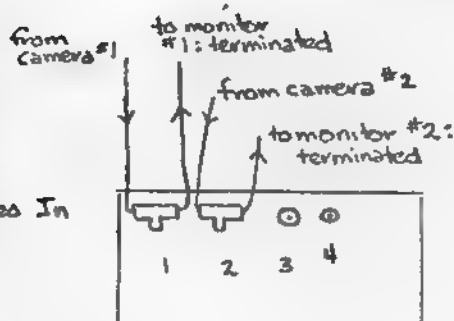 from
camera #1
to monitor
#1: terminated
from camera #2
to monitor #2:
terminated
In
1 2 3 4